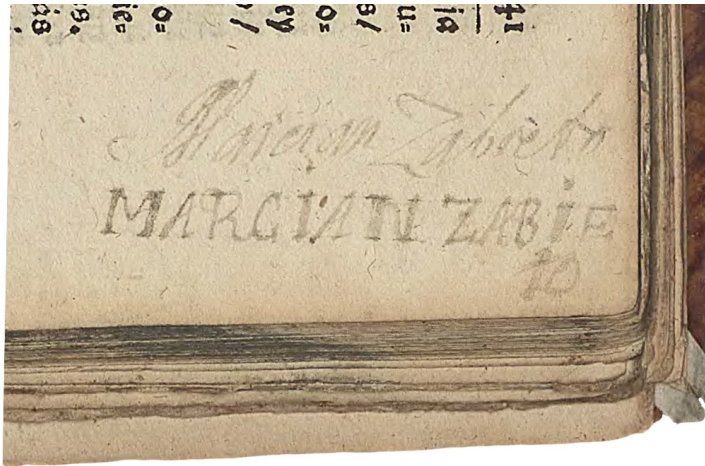 Marcian Zabieło
MARCIAN ZABIE
ŁO